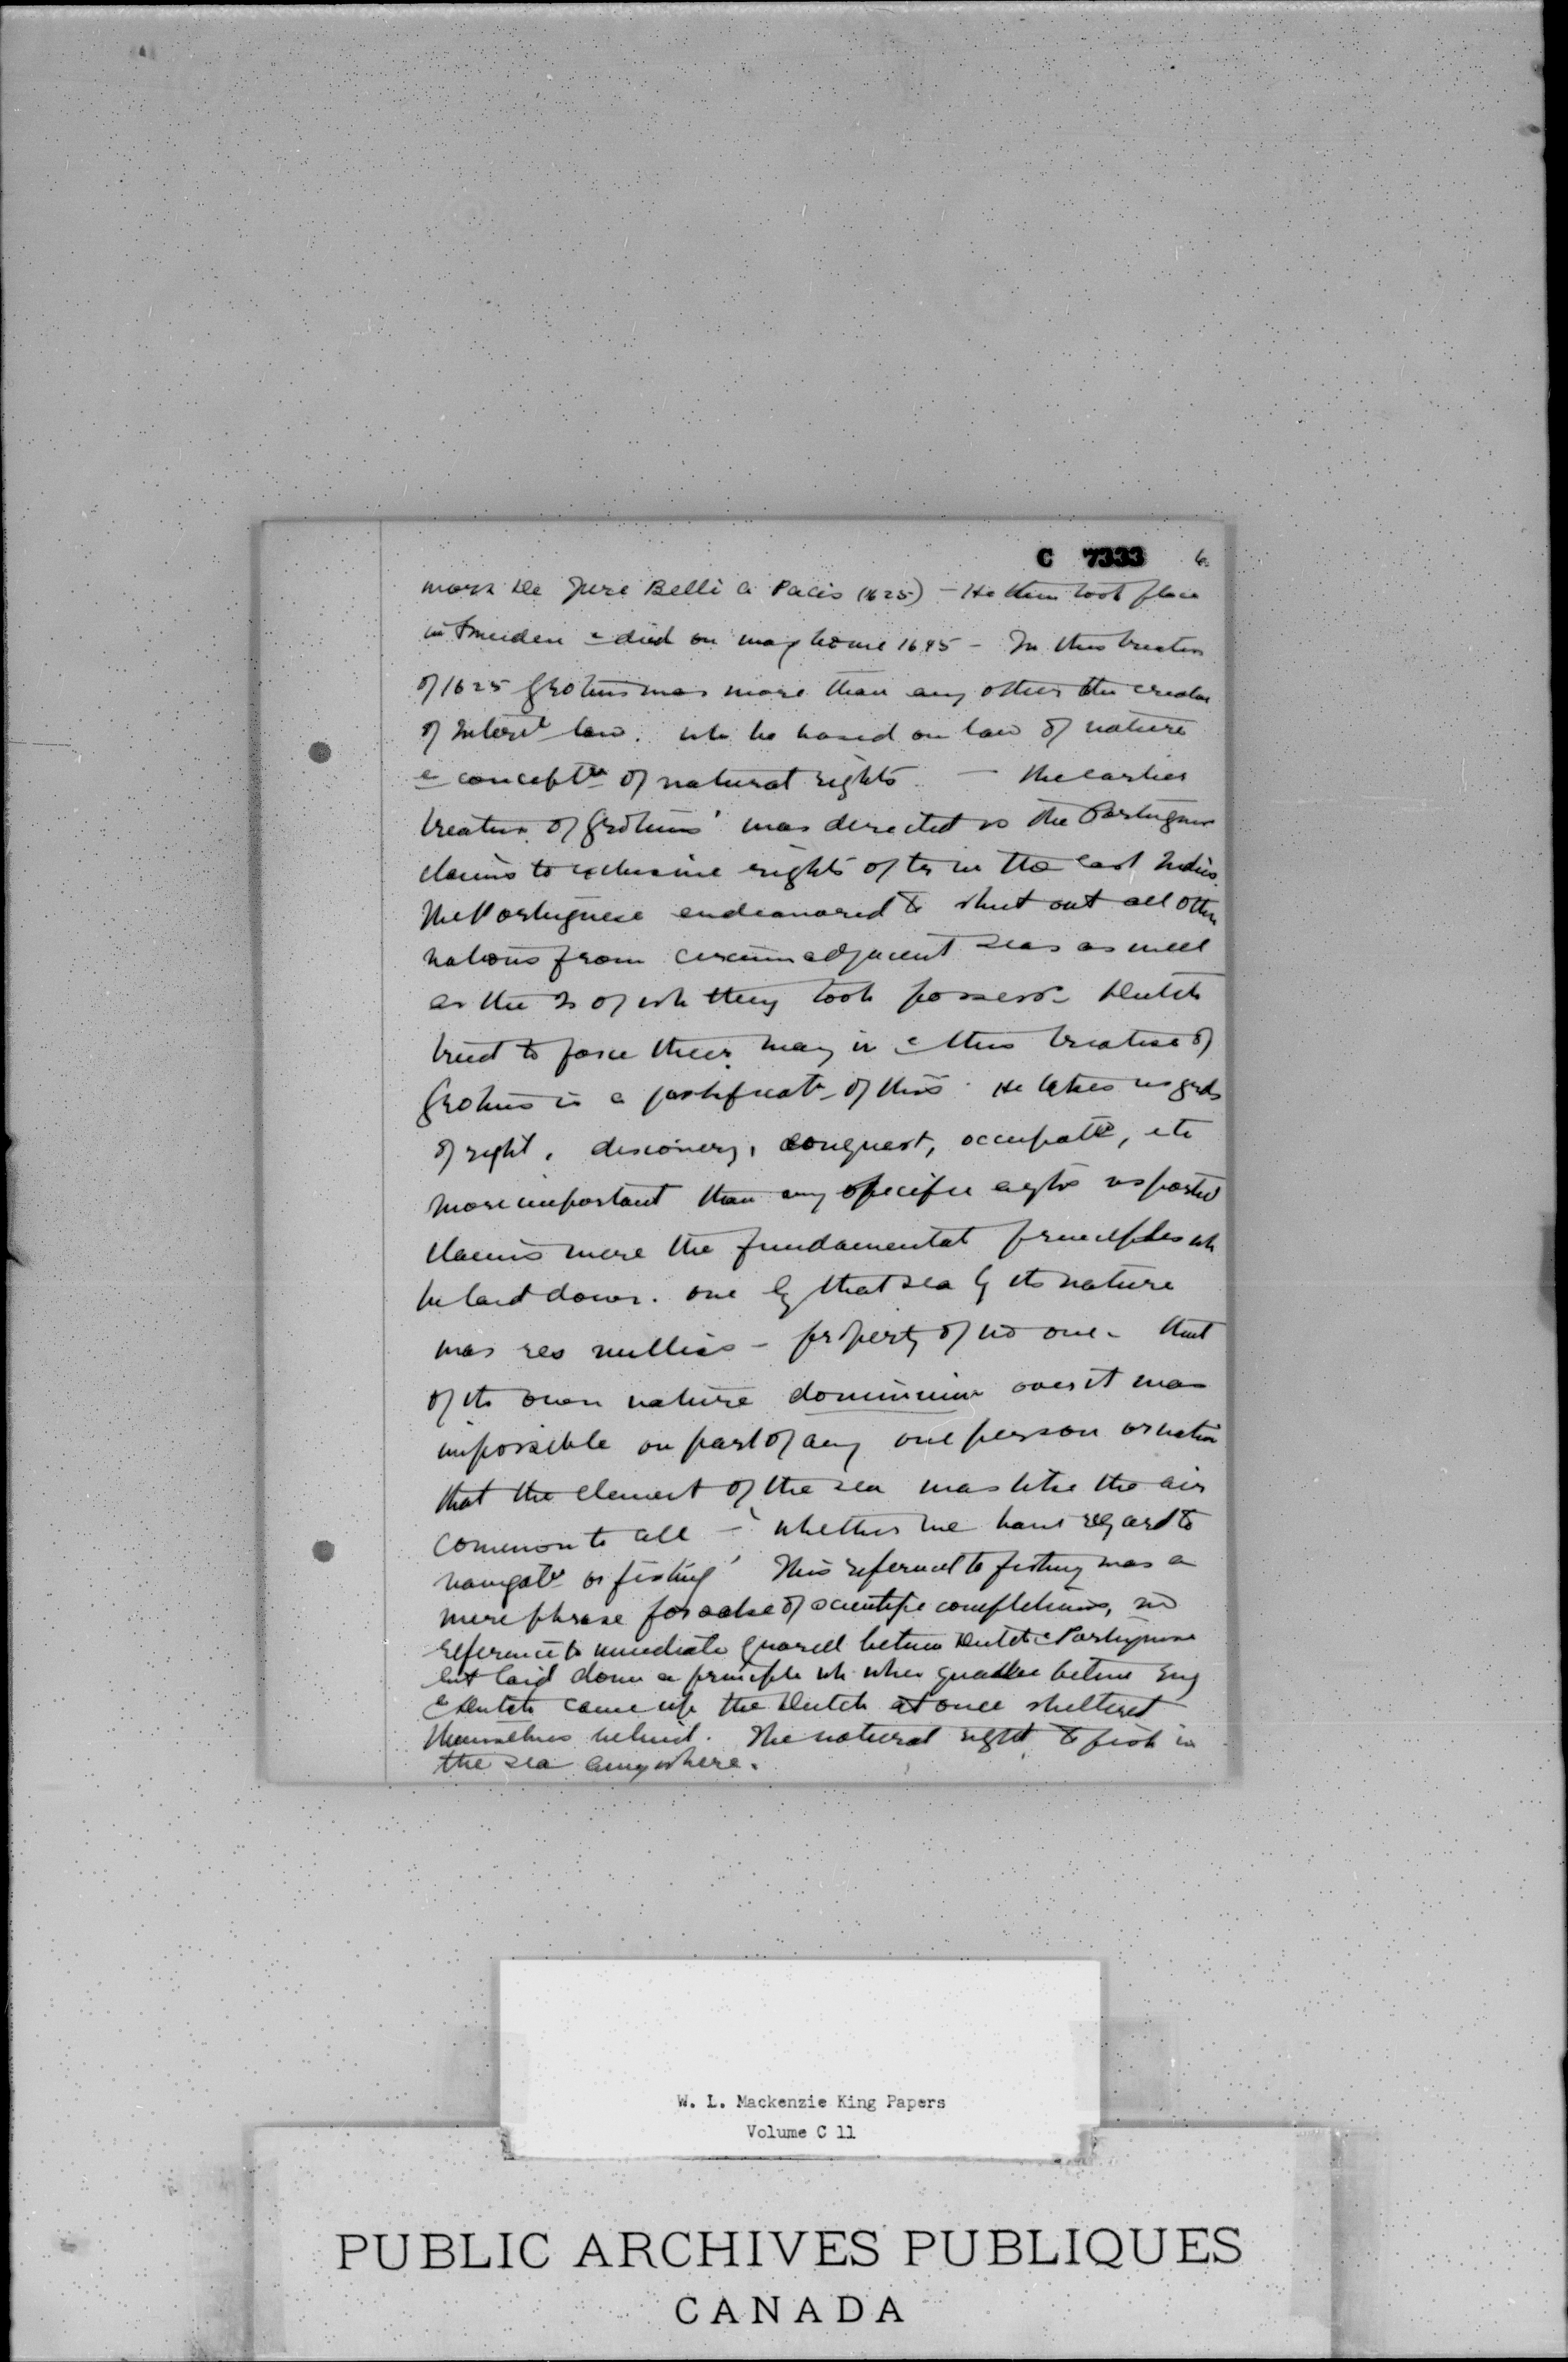 C 7333 6
work De Jure Belli a Pacis (1625) – He then took place
in Sweden & died on way home 1645 – In this treatise
of 1625 Grotius was more than any other the creator
of Internl law. wh he based on law of nature
& conceptn of natural rights – The earlier
treatise of Grotius' was directed vs the Portuguese
claims to exclusive rights of in the East Indies.
The Portuguese endeavored to shut out all other
nations from circumadjacent seas as well
as the Is of wh they took possessn Dutch
tried to force their way in & this treatise of
Grotius is a justificatn of this. He takes
of right, discovery, conquest, occupatn, etc
more important than any specific vs
claims were the fundamental principles wh
he laid down. one that sea by its nature
was res nullius – property of no one – that
of its own nature dominium over it was
impossible on part of any one person or nation
that the element of the sea was like the air
common to all – 'whether we have regard to
navigatn or fishing' This reference to fishing was a
mere phrase for sake of scientific completeness, no
reference to immediate quarrel between Dutch & Portuguese
but laid down a principle wh when quarrel between Eng
& Dutch came up the Dutch at once sheltered
themselves behind. The natural right to fish in
the sea anywhere.
W. L. Mackenzie King Papers
Volume C 11
PUBLIC ARCHIVES PUBLIQUES
CANADA